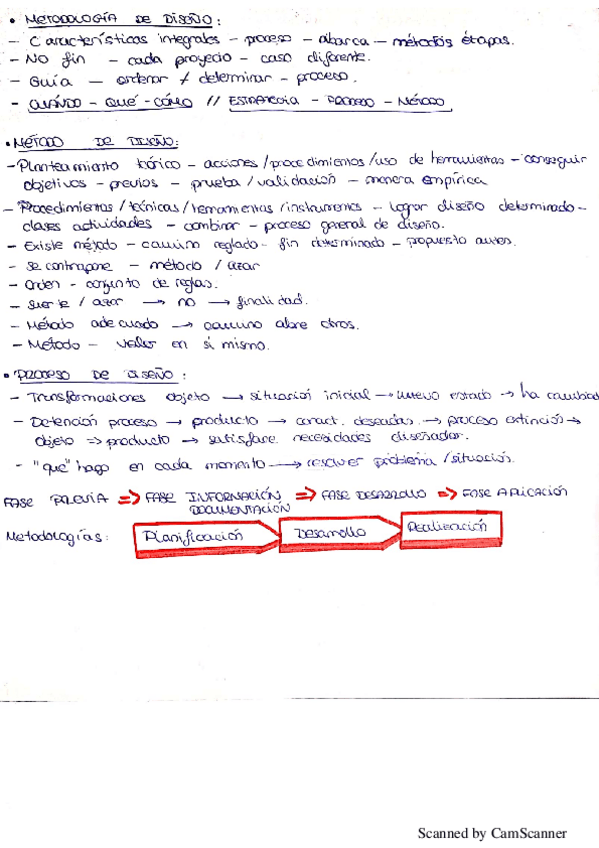 • METODOLOGÍA DE DISEÑO:
- Características integrales - proceso - abarca - métodos, etapas.
- No fin - cada proyecto - caso diferente.
- Guía - ordenar / determinar - proceso.
- CUÁNDO - QUÉ - CÓMO // ESTRATEGIA - PROCESO - MÉTODO
• MÉTODO DE DISEÑO:
- Planteamiento teórico - acciones / procedimientos / uso de herramientas - conseguir
objetivos - previos - prueba / validación - manera empírica
- Procedimientos / técnicas / herramientas / instrumentos - lograr diseño determinado -
clases actividades - combinar - proceso general de diseño.
- Existe método - camino reglado - fin determinado - propuesto antes.
- Se contrapone - método / azar
- Orden - conjunto de reglas.
- Suerte / azar → no → finalidad.
- Método adecuado → camino abre otros.
- Método - valor en si mismo.
• PROCESO DE DISEÑO:
- Transformaciones objeto → situación inicial → nuevo estado → ha cambiado
- Detención proceso → producto → caract. deseadas → proceso extinción →
objeto => producto → satisface necesidades diseñador.
- "qué" hago en cada momento → resolver problema / situación.
FASE PREVIA => FASE INFORMACIÓN => FASE DESARROLLO => FASE APLICACIÓN
DOCUMENTACIÓN
Metodologías: Planificación Desarrollo Realización
Scanned by CamScanner